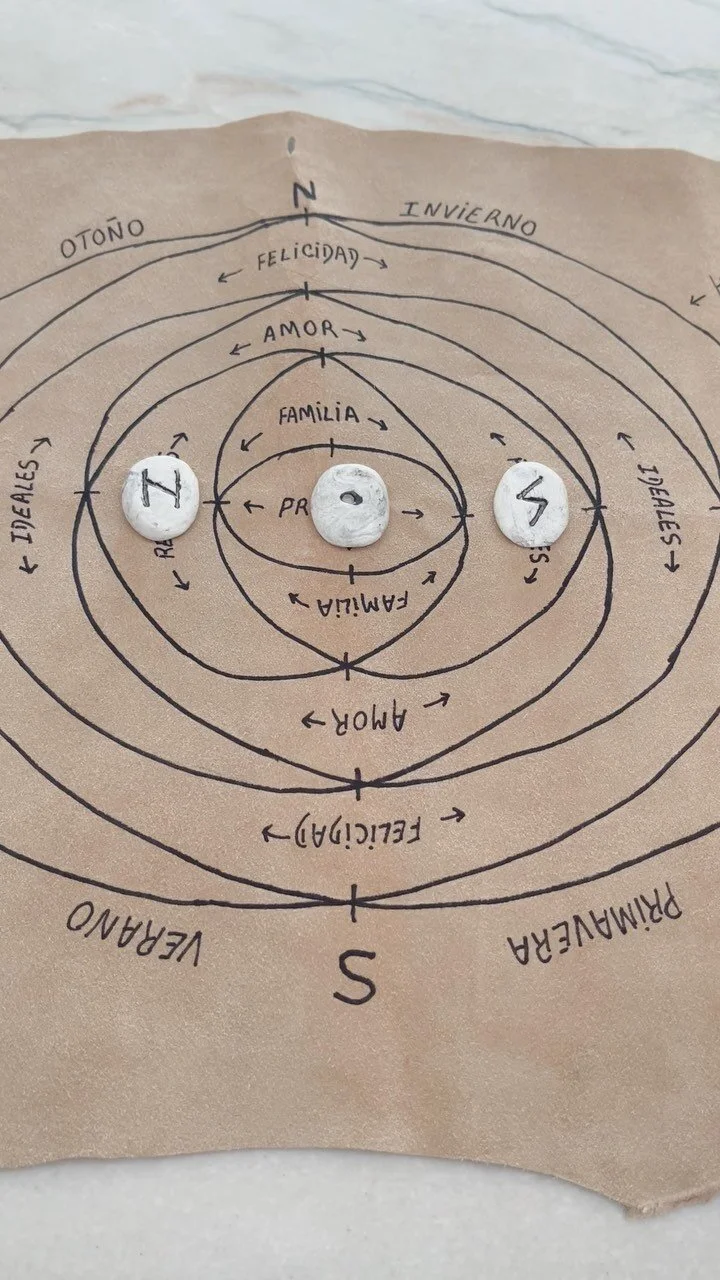 N
OTOÑO
INVIERNO
← FELICIDAD →
← AMOR →
← FAMILIA →
← IDEALES →
← IDEALES →
← FAMILIA →
← AMOR →
← FELICIDAD →
VERANO
PRIMAVERA
S